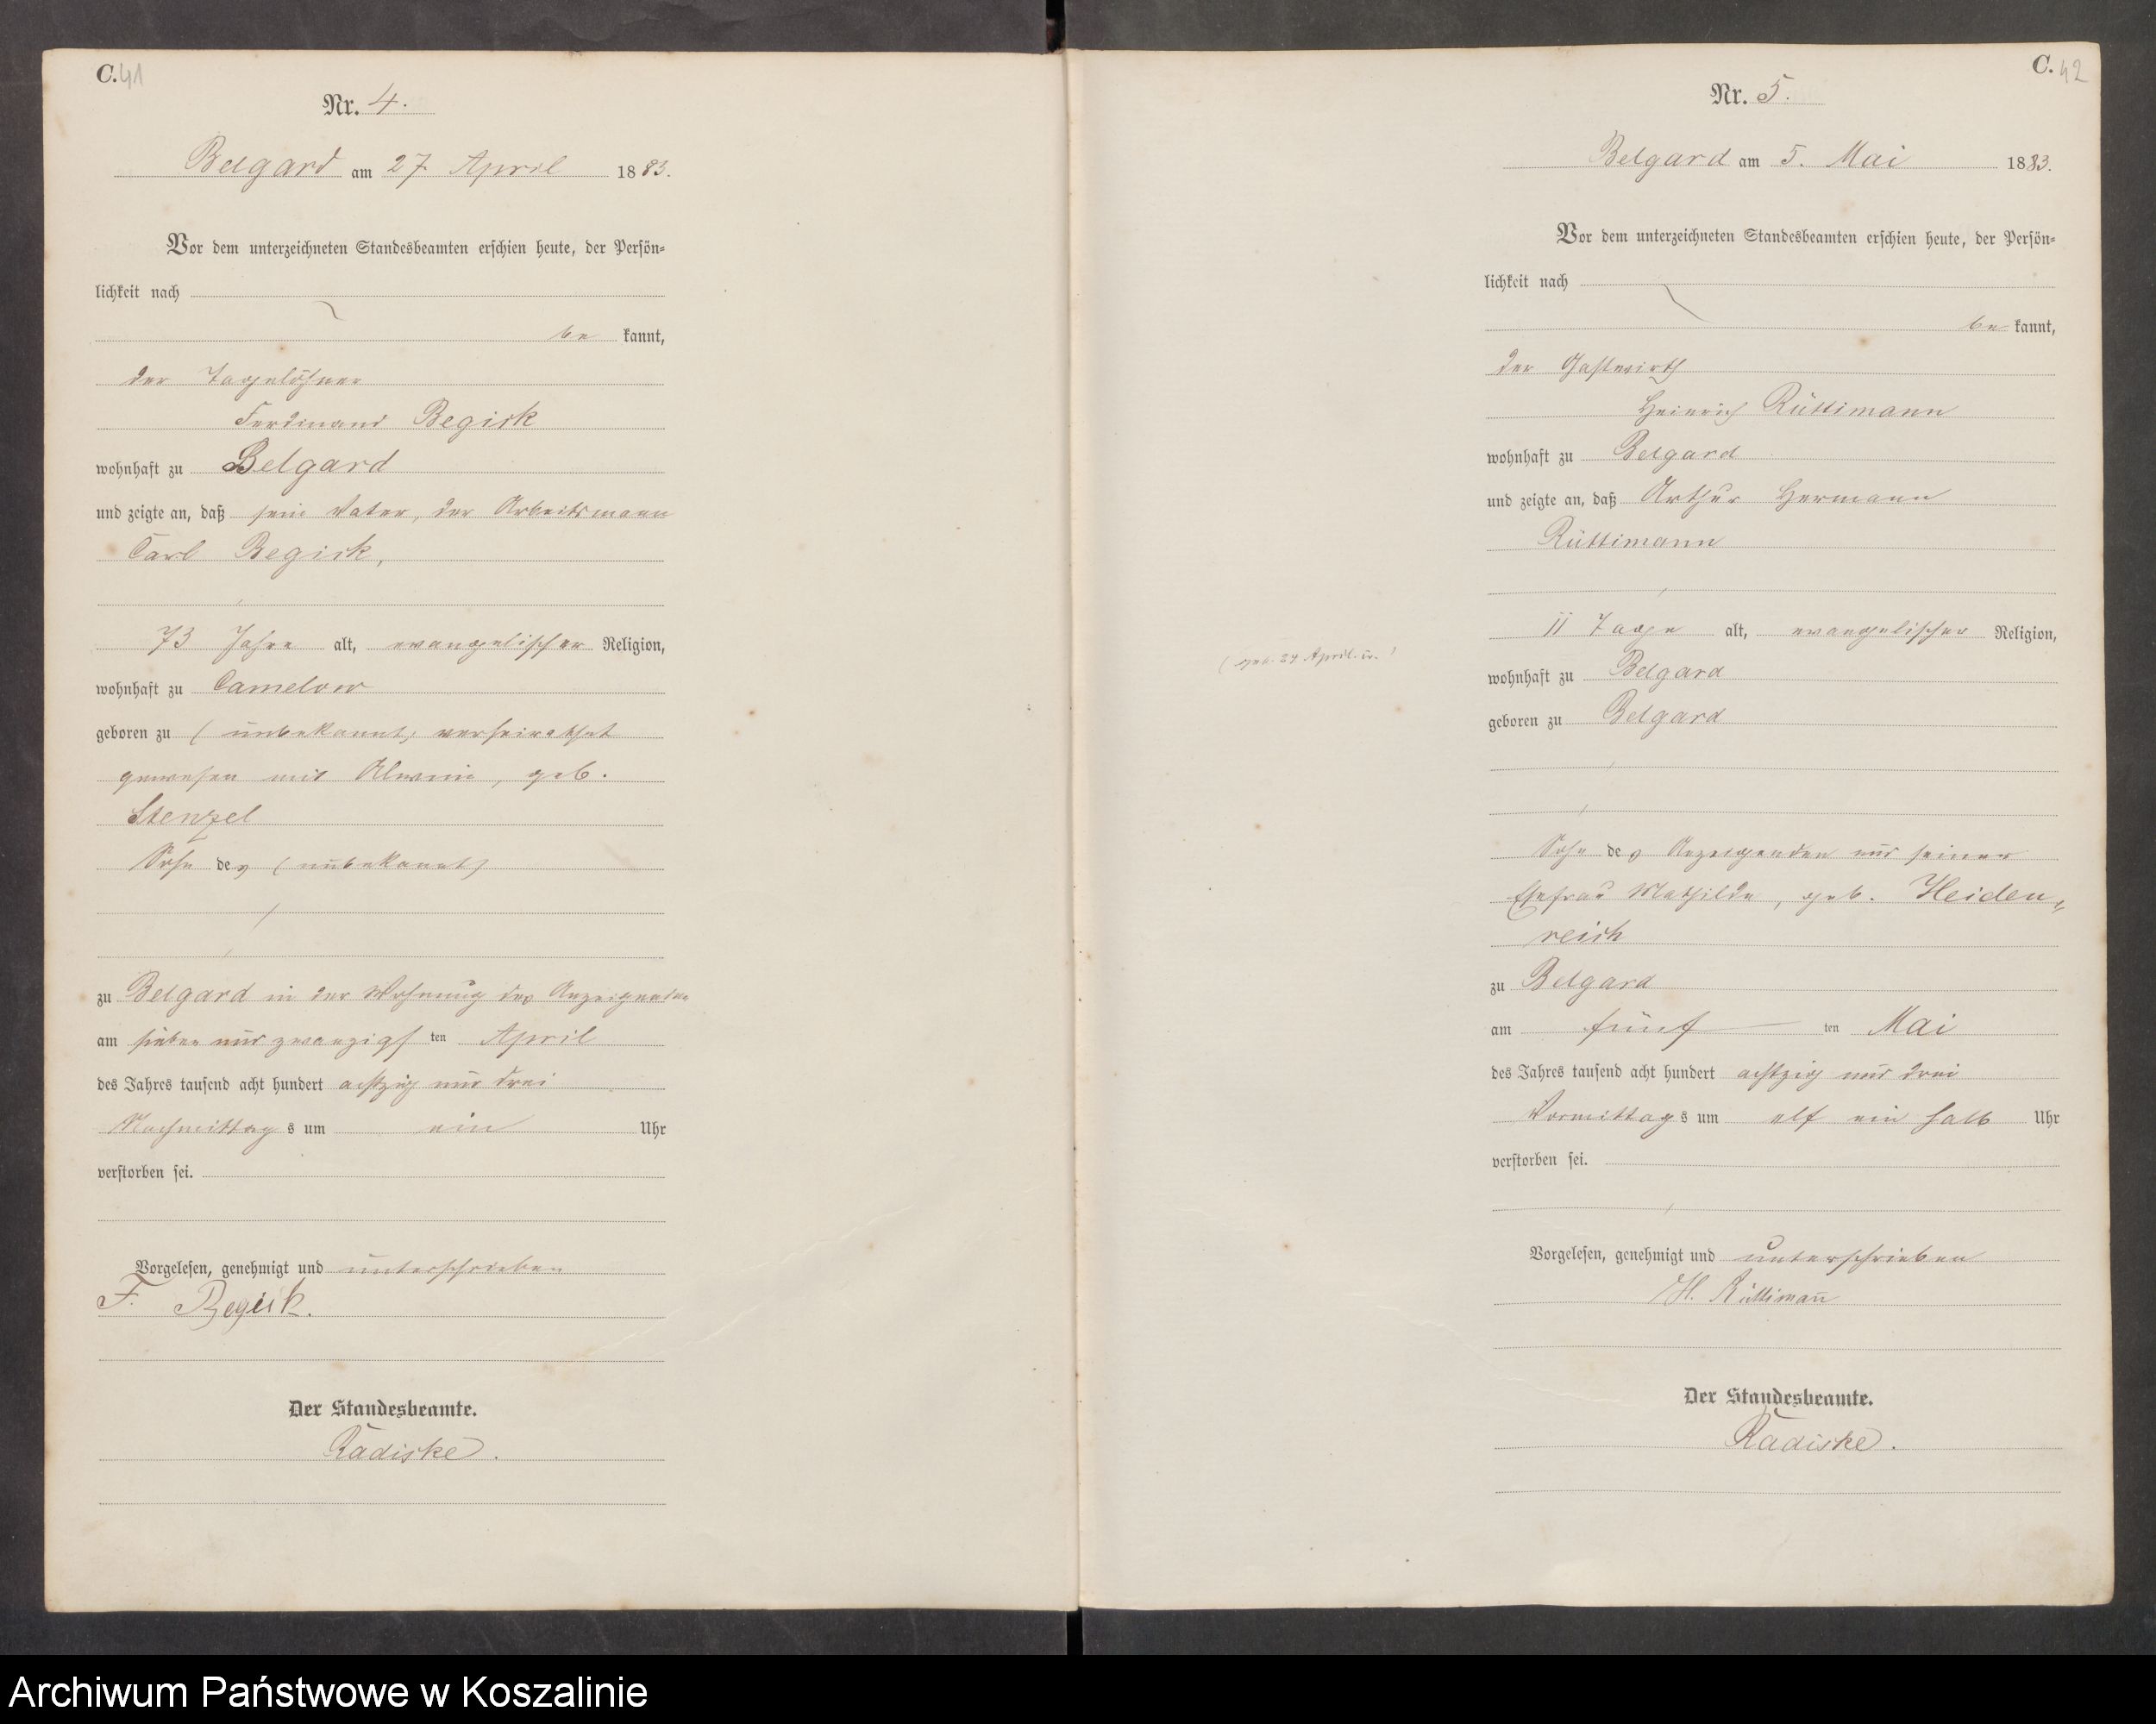 C. 41
Nr. 4.
Belgard am 27 April 1883.
Vor dem unterzeichneten Standesbeamten erschien heute, der Persön=
lichkeit nach
be kannt,
der Tagelöhner
Ferdinand Begisk
wohnhaft zu Belgard
und zeigte an, daß sein Vater, der Arbeitsmann
Carl Begisk,
73 Jahre alt, evangelischer Religion,
wohnhaft zu Camelow
geboren zu (unbekannt) verheirathet
gewesen mit Alwine, geb.
Stenzel
Sohn des (unbekannt)
zu Belgard in der Wohnung des Anzeigenden
am sieben und zwanzigs ten April
des Jahres tausend acht hundert achtzig und drei
Nachmittag s um ein Uhr
verstorben sei.
Vorgelesen, genehmigt und unterschrieben
F. Begisk.
Der Standesbeamte.
Radiske.
C. 42
Nr. 5.
Belgard am 5. Mai 1883.
Vor dem unterzeichneten Standesbeamten erschien heute, der Persön=
lichkeit nach
be kannt,
der Gastwirth
Heinrich Rüttimann
wohnhaft zu Belgard
und zeigte an, daß Arthur Hermann
Rüttimann
11 Tage alt, evangelischer Religion,
(geb. 24 April
wohnhaft zu Belgard
geboren zu Belgard
Sohn des Anzeigenden und seiner
Ehefrau Mathilde, geb. Heiden=
reich
zu Belgard
am fünf ten Mai
des Jahres tausend acht hundert achtzig und drei
Vormittag s um elf ein halb Uhr
verstorben sei.
Vorgelesen, genehmigt und unterschrieben
H. Rüttimañ
Der Standesbeamte.
Radiske.
Archiwum Państwowe w Koszalinie